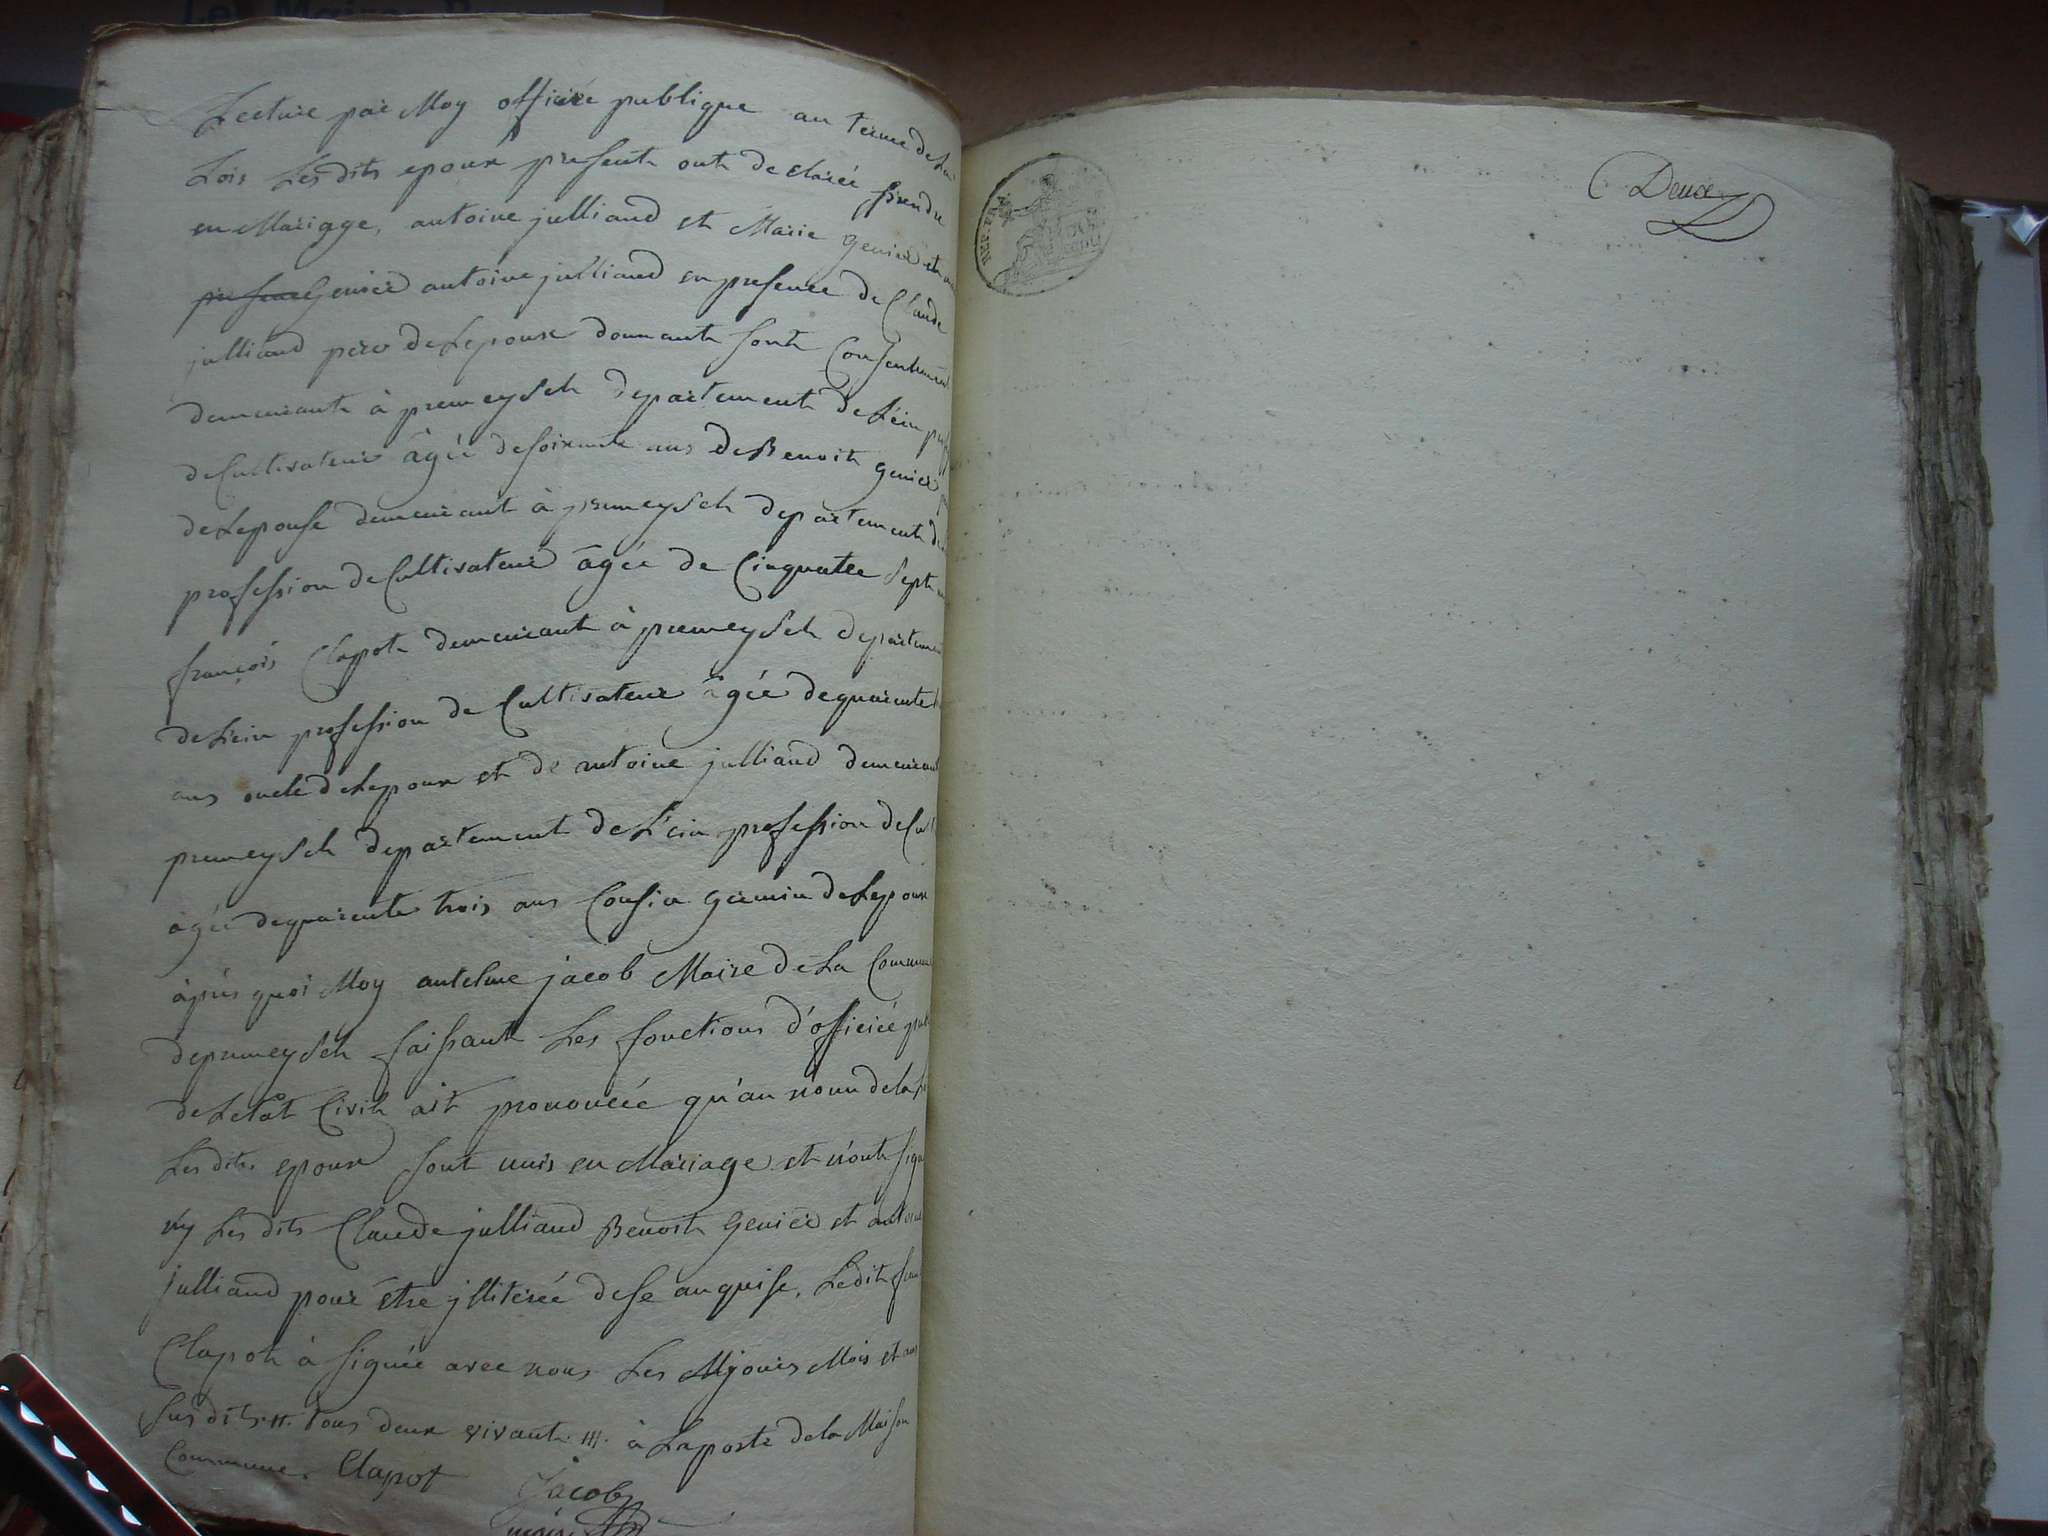 Lecture par Moy officiée publique au terme de La
Lois Les dits epoux present ont declarée prendre
en Mariage, antoine julliand et Marie Genier et
presence Genier antoine julliand en presence de Claude
julliand pere de Lepoux donnant sont Consentement
demeurant à premeysel departement de L'ein
de Cultivateur âgée de soixante ans de Benoit Genier
de Lepouse demeurant à premeysel departement de
profession de Cultivateur âgée de Cinquatee Sept
françois Clapot demeurant à premeysel departement
de L'ein profession de Cultivateur âgée de quarente
ans oncle de Lepoux et de antoine julliand demeurant
premeysel departement de L'ein profession de Cult
agée de quarente trois ans Cousin germin de Lepoux
àprés quoi Moy antelme jacob Maire de La Commune
de premeysel faissant Les fonctions d'officiée pub
de Letât Civil ait prononcée qu'au nom de la
Les dits epoux sont unis en Mariage et n'ont signé
n'y Les dits Claude julliand Benoit Genier et antoine
julliand pour être jlliterée de se anquise, Ledit
Clapot à signée avec nous Les Mjours Mois et an
Sus dits .//. tous deux vivant .///. à La porte de la Maison
Commune. Clapot
Jacob
maire
REP. FRA
Deux